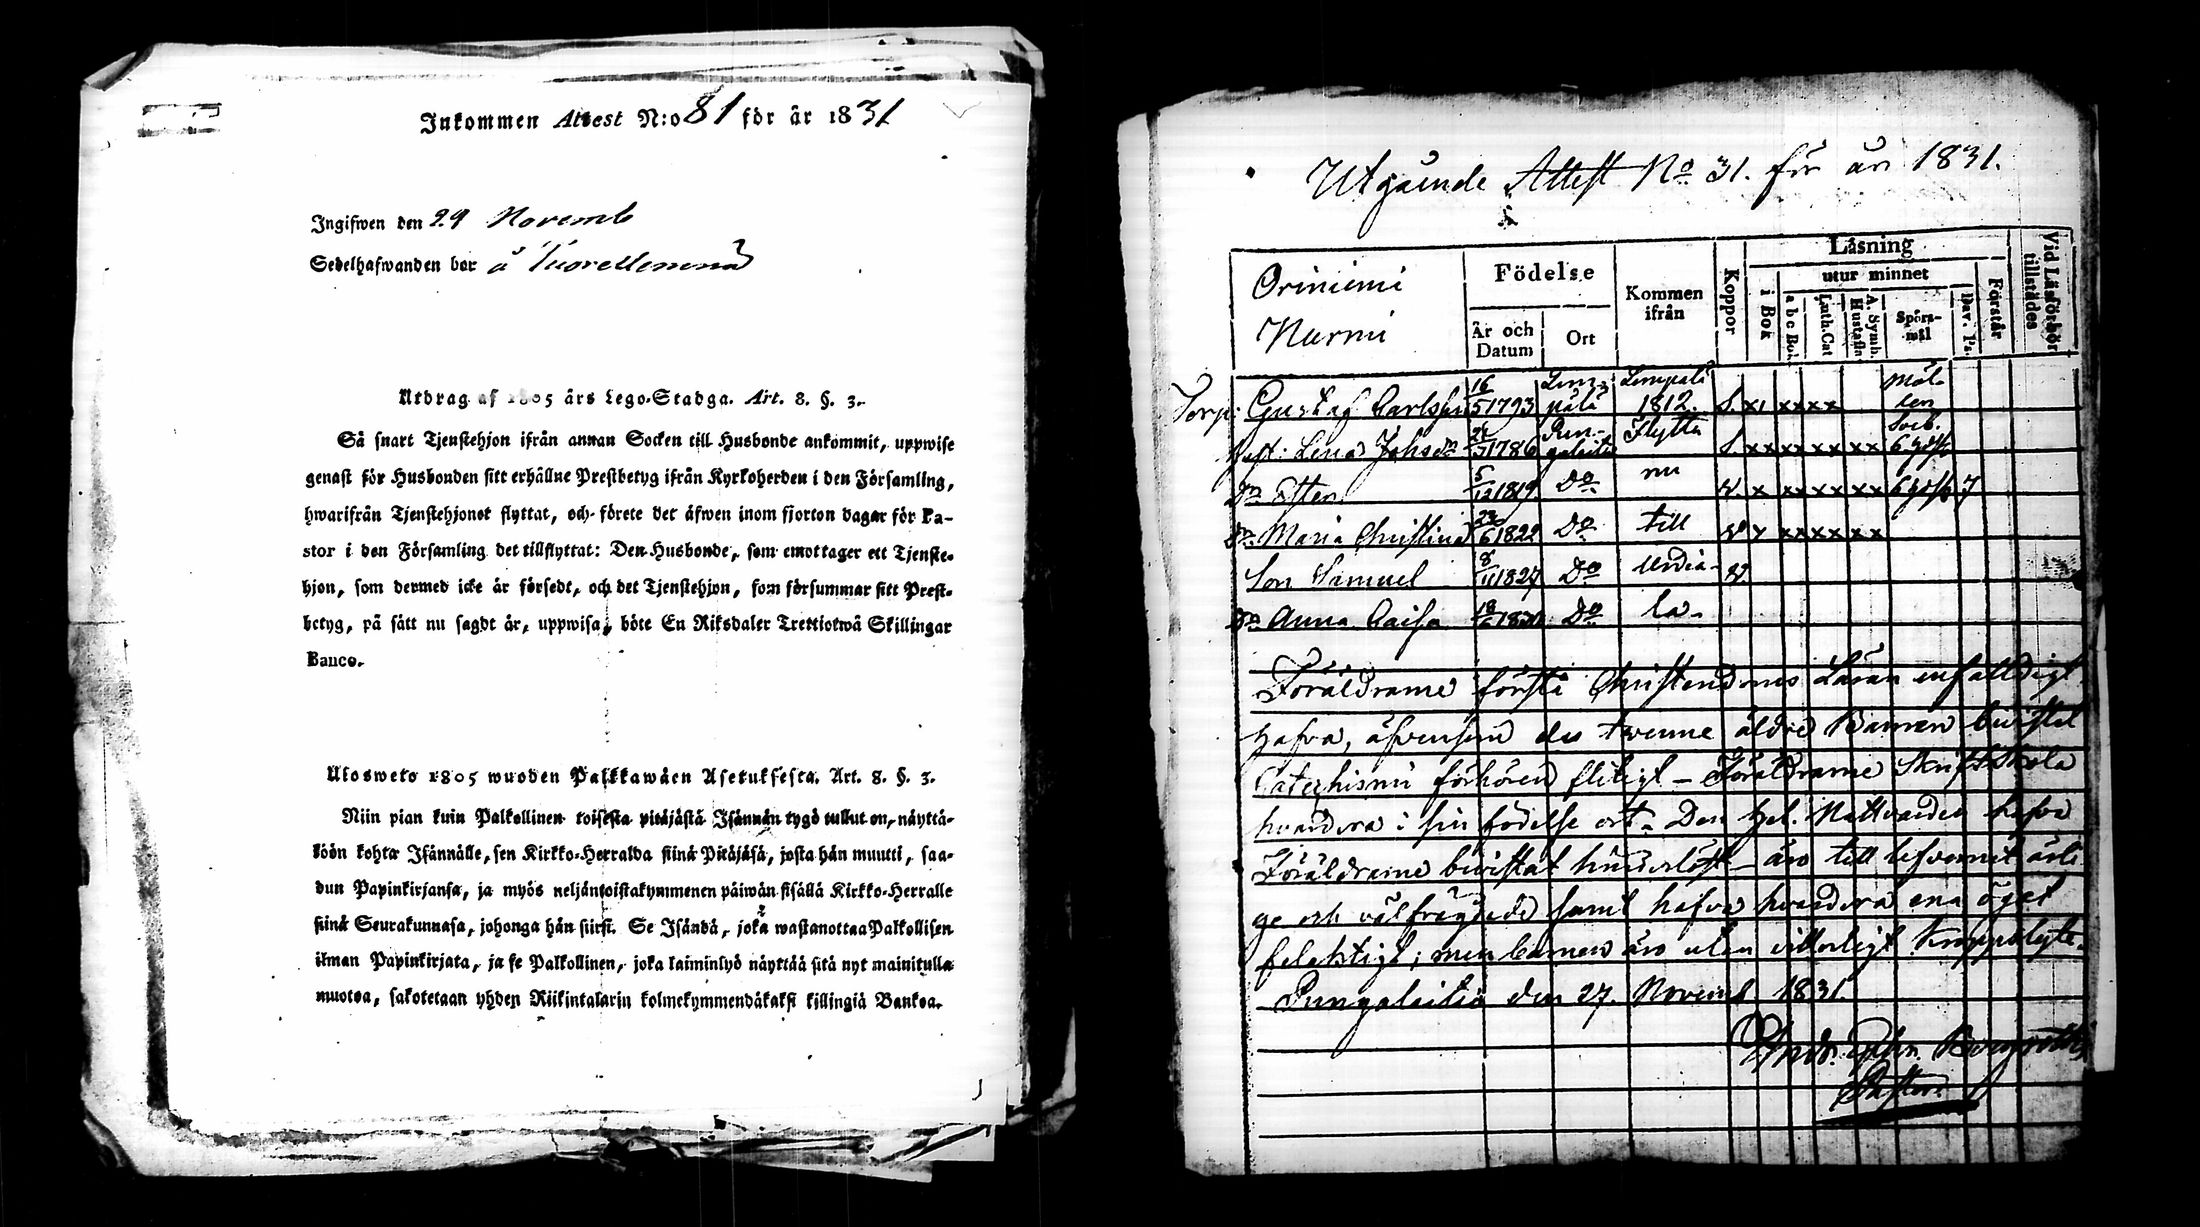 Inkommen Attest N:o 81 för år 1831
Ingifwen den 29 Novemb
Sedelhafwanden bor å
Utdrag af 1805 års Lego-Stadga. Art. 8. §. 3.
Så snart Tjenstehjon ifrån annan Socken till Husbonde ankommit, uppwise
genast för Husbonden sitt erhållne Prestbetyg ifrån Kyrkoherden i den Församling,
hwarifrån Tjenstehjonet flyttat, och förete det äfwen inom fjorton dagar för Pa-
stor i den Församling det tillflyttat: Den Husbonde, som emottager ett Tjenste-
hjon, som dermed icke är försedt, och det Tjenstehjon, som försummar sitt Prest-
betyg, på sätt nu sagdt är, uppwisa, böte En Riksdaler Trettiotwå Skillingar
Banco.
Ulosweto 1805 wuoden Palkkawäen Asetuksesta. Art. 8. §. 3.
Niin pian kuin Palkollinen toisesta pitäjästä Isännän tygö tullut on, näyttä-
köön kohta Isännälle, sen Kirkko-Herralda siinä Pitäjäsä, josta hän muutti, saa-
dun Papinkirjansa, ja myös neljäntoistakymmenen päiwän sisällä Kirkko-Herralle
siinä Seurakunnasa, johonga hän siirsi. Se Isändä, joka wastanottaa Palkollisen
ilman Papinkirjata, ja se Palkollinen, joka laiminlyö näyttää sitä nyt mainitulla
muotoa, sakotetaan yhden Riikintalarin kolmekymmendäkaksi killingiä Bankoa.
Utgående Attest No 31. för år 1831.
Oriniemi
Nurmi
Födelse
År och Datum
Ort
Kommen ifrån
Koppor
Läsning
i Bok
utur minnet
a b c Bok
Luth. Cat
A. Symb. Hustafla
Spörs-mål
Dav. Ps.
Förstår
Vid Läsförhör tillstädes
Torp: Gustaf Carlsson 16/5 1793 Lempälä Lempälä 1812. S.
Hust: Lena Johsdr 1786 Pungalaitio Flytta S.
Dr Esther 5/12 1819 Do nu
Dr Maria Christina 6 1822 Do till
Son Samuel 8/11 1827 Do Urdia-
Dr Anna Caisa Do la
Föräldrarne förstå Christendoms Läran enfalldigt
hafva, äfvensom des tvenne äldre Barnen bevistat
Catechismi förhören flitigt – Föräldrarne Skriftskola
hvardera i sin födelse ort. Den Hel. Nattvarden hafva
Föräldrarne bevistat hinderlöst – äro till lefvernet ärli
ge och välfrägdade samt hafva hvardera ena ögat
felaktigt; men barnen äro utan vitterligt kroppslyte.
Pungalaitio den 27. Novemb 1831.
Pastor